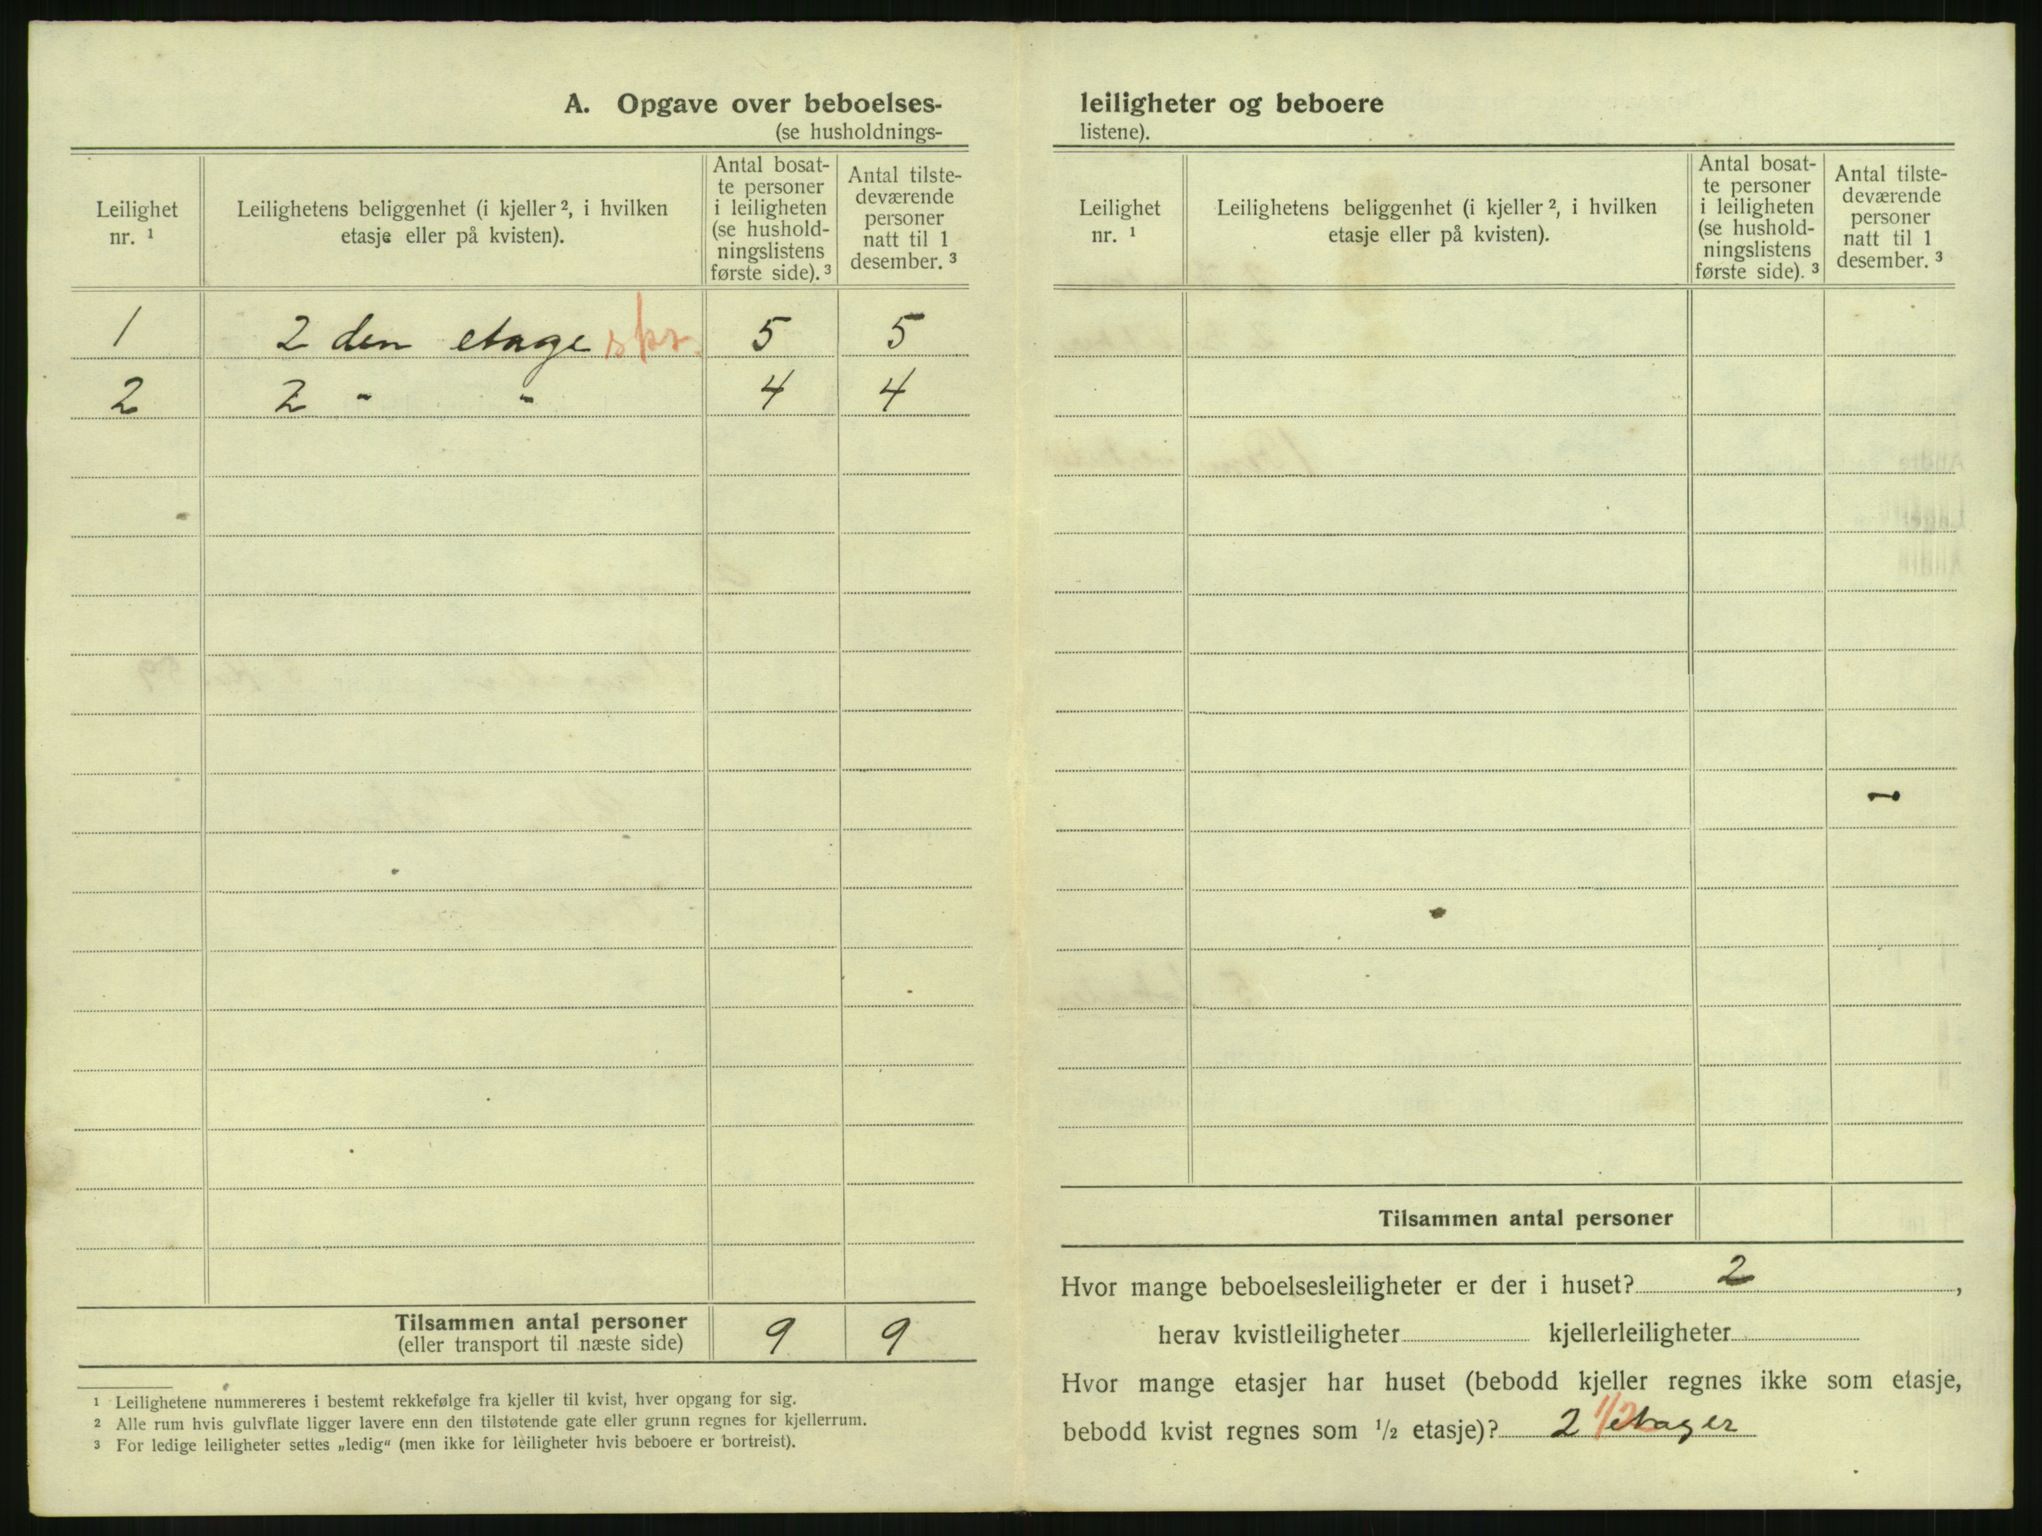 A. Opgave over beboelses-
(se husholdnings-
Leilighet nr. 1
Leilighetens beliggenhet (i kjeller 2, i hvilken etasje eller på kvisten).
Antal bosatte personer i leiligheten (se husholdningslistens første side). 3
Antal tilstedeværende personer natt til 1 desember. 3
1 2 den etage 5 5
2 2 " " 4 4
Tilsammen antal personer 9 9
(eller transport til næste side)
1 Leilighetene nummereres i bestemt rekkefølge fra kjeller til kvist, hver opgang for sig.
2 Alle rum hvis gulvflate ligger lavere enn den tilstøtende gate eller grunn regnes for kjellerrum.
3 For ledige leiligheter settes „ledig“ (men ikke for leiligheter hvis beboere er bortreist).
leiligheter og beboere
listene).
Leilighet nr. 1
Leilighetens beliggenhet (i kjeller 2, i hvilken etasje eller på kvisten).
Antal bosatte personer i leiligheten (se husholdningslistens første side). 3
Antal tilstedeværende personer natt til 1 desember. 3
Tilsammen antal personer
Hvor mange beboelsesleiligheter er der i huset? 2,
herav kvistleiligheter kjellerleiligheter
Hvor mange etasjer har huset (bebodd kjeller regnes ikke som etasje,
bebodd kvist regnes som 1/2 etasje)? 2 1/2 etager